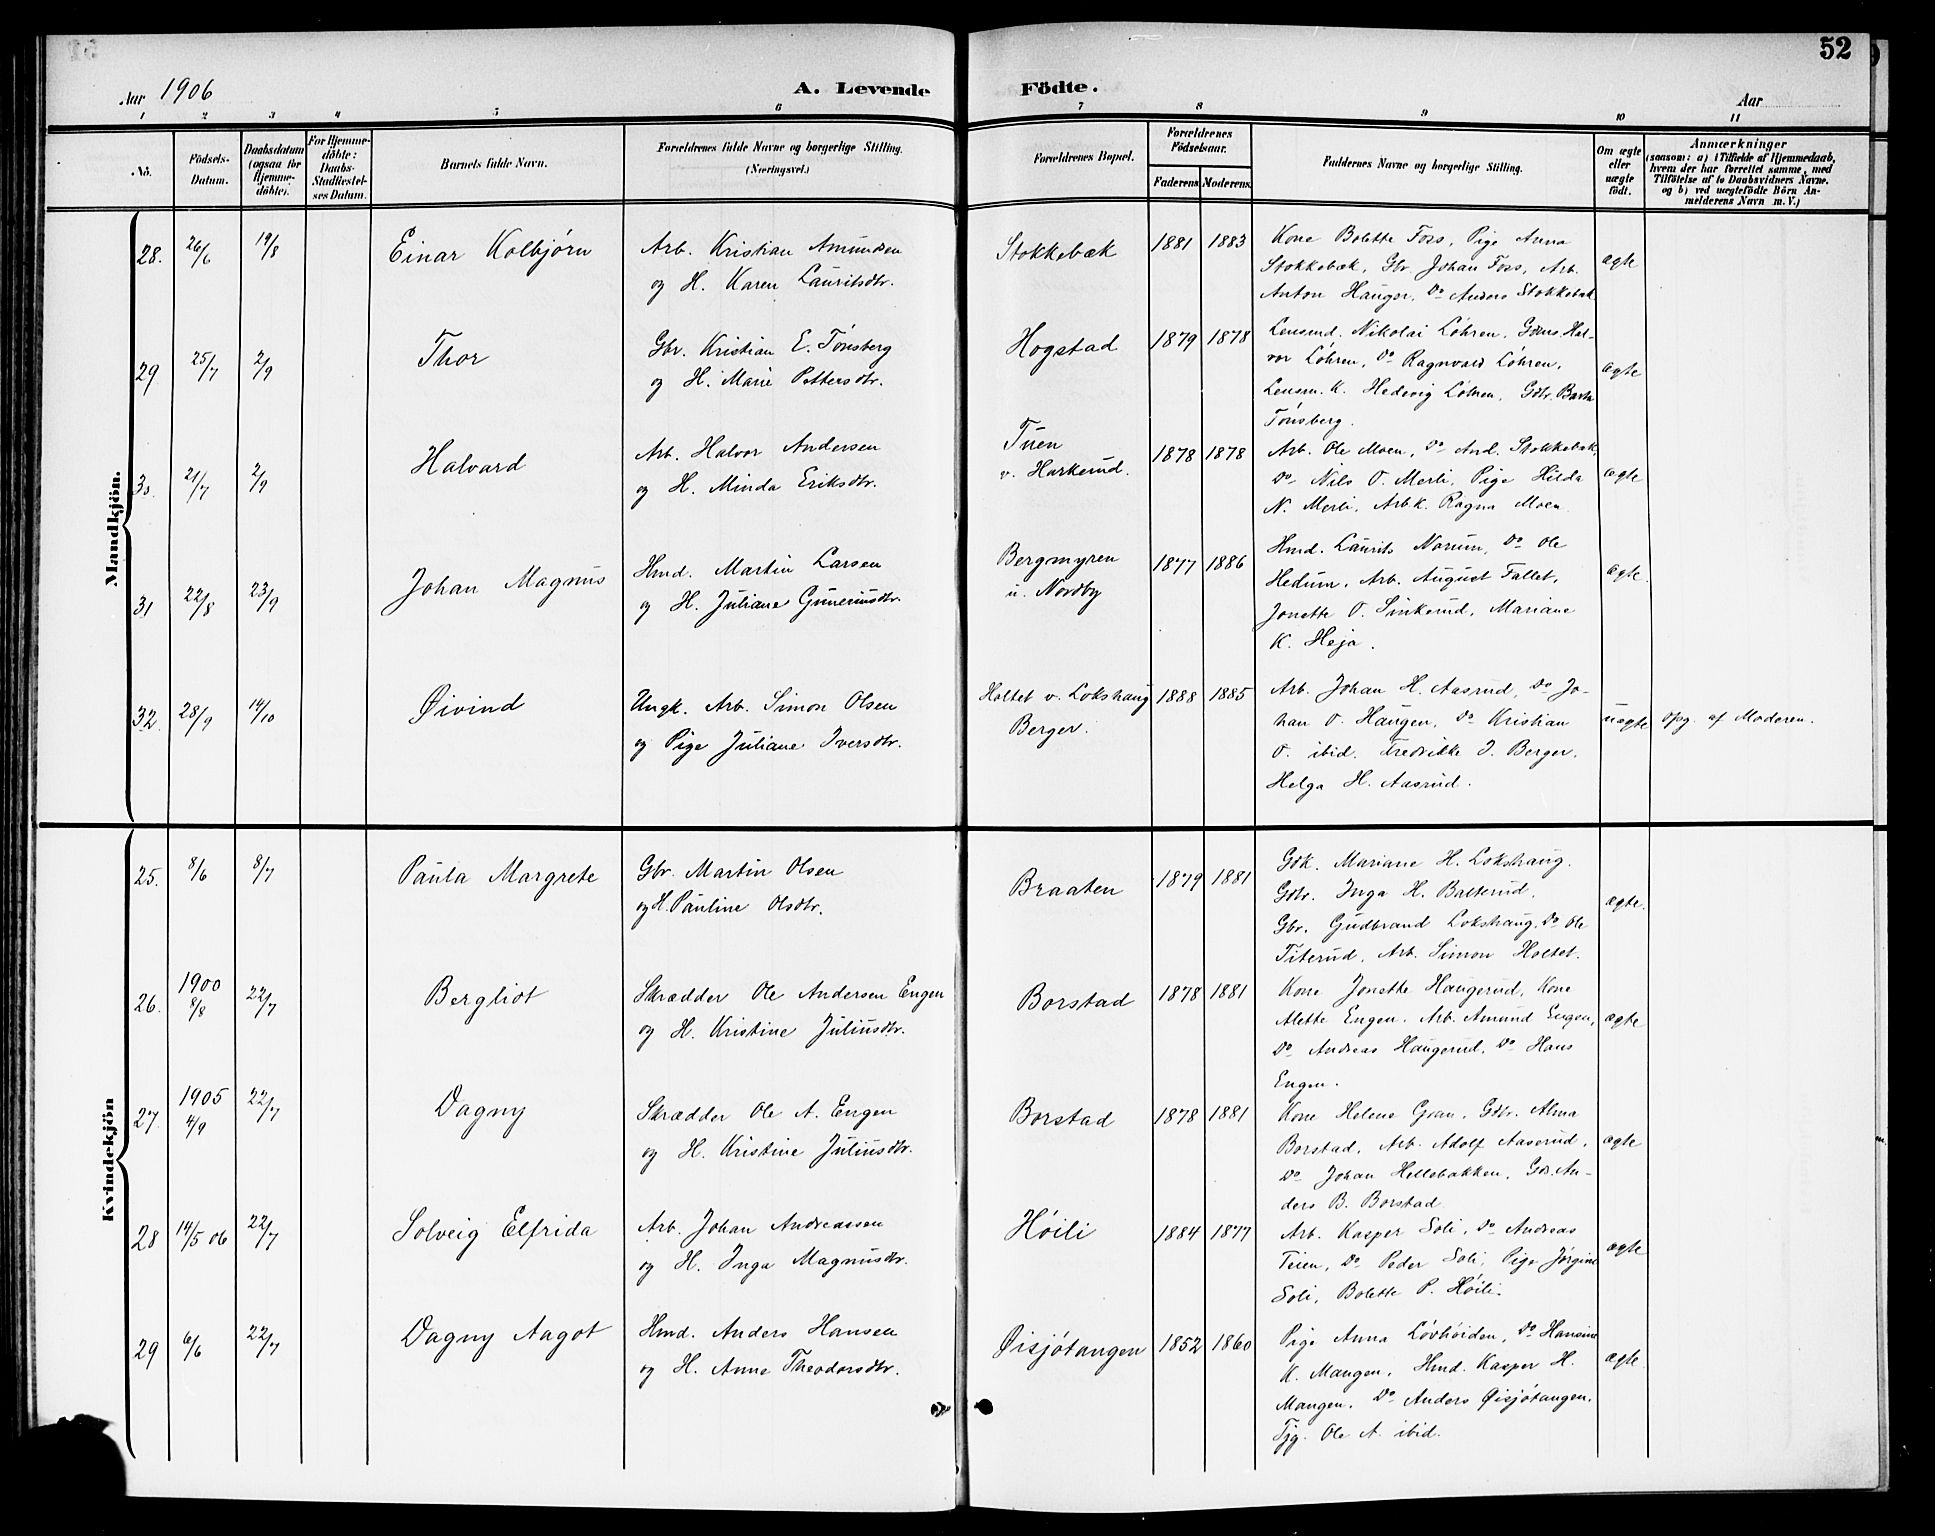 52
Aar 1906
A. Levende Födte.
Aar
1 2 3 4 5 6 7 8 9 10 11
No.
Födsels-
Datum.
Daabsdatum
(ogsaa for
Hjemme-
döbte).
For Hjemme-
döbte:
Daabs-
Stadfæstel-
ses Datum.
Barnets fulde Navn.
Forældrenes fulde Navne og borgerlige Stilling.
(Næringsvei.)
Forældrenes Bopæl.
Forældrenes
Födselsaar.
Faderens. Moderens.
Faddernes Navne og borgerlige Stilling.
Om ægte
eller
uægte
födt.
Anmærkninger
(saasom: a) i Tilfælde af Hjemmedaab,
hvem der har forrettet samme, med
Tilföielse af to Daabsvidners Navne,
og b) ved uægtefödte Börn An-
melderens Navn m. V.)
Mandkjön.
28. 26/6 19/8 Einar Kolbjørn
Arb. Kristian Amundsen
og H. Karen Lauritsdtr.
Stokkebæk 1881 1883
Kone Bolette Foss, Pige Anna
Stokkebæk, Gbr. Johan Foss, Arb.
Anton Haugor, Do Anders Stokkebæk
ægte
29 25/7 2/9 Thor
Gbr. Kristian E. Tønsberg
og H. Marie Pettersdtr.
Hogstad 1879 1878
Lensmd. Nikolai Løhren, Gdms. Hal-
vor Løhren, Do Ragnvald Løhren,
Lensm. K. Hedevig Løhren, Gdtr. Bertha
Tønsberg.
ægte
30. 21/7 2/9 Halvard
Arb. Halvor Andersen
og H. Minda Eriksdtr.
Tuen
v. Harkerud. 1878 1878
Arb. Ole Moen, Do And. Stokkebæk,
Do Nils O. Merli, Pige Hilda
N. Merli, Arbk. Ragna Moen
ægte
31 22/8 23/9 Johan Magnus
Hmd. Martin Larsen
og H. Juliane Guneriusdtr.
Bergmyren
u. Nordby 1877 1886
Hmd. Laurits Norum, Do Ole
Hedum, Arb. August Fallet,
Jonette O. Sinkerud, Mariane
K. Heja.
ægte
32. 28/9 14/10 Øivind
Ungk. Arb. Simon Olsen
og Pige Juliane Iversdtr.
Holtet v. Lokshaug
Berger. 1888 1885
Arb. Johan H. Aasrud, Do Jo-
han O. Haugen, Do Kristian
O. ibid. Fredrikke I. Berger,
Helga H. Aasrud.
uægte opg. af Moderen.
Kvindekjön
25. 8/6 8/7 Paula Margrete
Gbr. Martin Olsen
og H. Pauline Olsdtr.
Braaten 1879 1881
Gdk. Mariane H. Lokshaug.
Gdtr. Inga H. Balterud,
Gbr. Gudbrand Lokshaug, Do Ole
Titerud, Arb. Simon Holtet.
ægte.
26. 1900 8/8 22/7 Bergliot
Skrædder Ole Andersen Engen
og H. Kristine Juliusdtr.
Borstad 1878 1881
Kone Jonette Haugerud, Kone
Alette Engen. Arb. Amund Engen,
Do Andreas Haugerud, Do Hans
Engen.
ægte
27. 1905 4/9 22/7 Dagny
Skrædder Ole A. Engen
og H. Kristine Juliusdtr.
Borstad 1878 1881
Kone Helene Gran, Gdtr. Alma
Borstad, Arb. Adolf Aaserud,
Do Johan Hellebakken, Gds. An-
ders B. Borstad
ægte
28 14/5 06 22/7 Solveig Elfrida
Arb. Johan Andreassen
og H. Inga Magnusdtr.
Høili 1884 1877
Arb. Kasper Soli, Do Andreas
Teien, Do Peder Soli, Pige Jørgine
Soli, Bolette P. Høili.
ægte
29 6/6 22/7 Dagny Aagot
Hmd. Anders Hansen
og H. Anne Theodorsdtr.
Øisjøtangen 1852 1860
Pige Anna Løvhøiden, Do Hansine
K. Mangen, Hmd. Kasper H.
Mangen. Do Anders Øisjøtangen,
Tjg. Ole A. ibid.
ægte